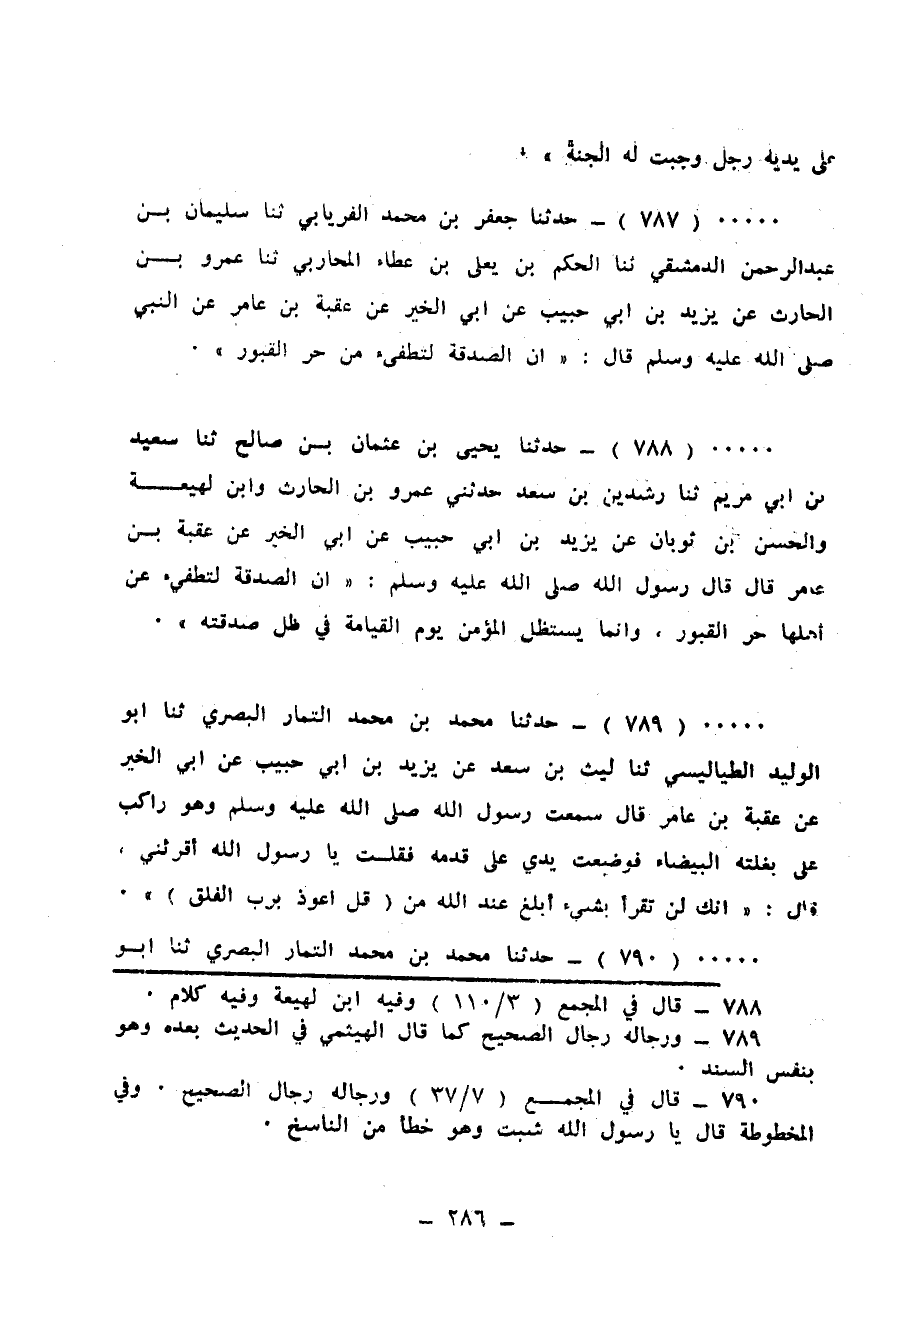 على يديه رجل وجبت له الجنة » .
٠٠٠٠٠ ( ٧٨٧ ) ـ حدثنا جعفر بن محمد الفريابي ثنا سليمان بـــن
عبدالرحمن الدمشقي ثنا الحكم بن يعلى بن عطاء المحاربي ثنا عمرو بـــن
الحارث عن يزيد بن ابي حبيب عن ابي الخير عن عقبة بن عامر عن النبي
صلى الله عليه وسلم قال : « ان الصدقة لتطفىء من حر القبور » ٠
٠٠٠٠٠ ( ٧٨٨ ) ـ حدثنا يحيى بن عثمان بــن صالح ثنا سعيد
بن ابي مريم ثنا رشدين بن سعد حدثني عمرو بن الحارث وابن لهيعـــــة
والحسن بن ثوبان عن يزيد بن ابي حبيب عن ابي الخير عن عقبة بــن
عامر قال قال رسول الله صلى الله عليه وسلم : « ان الصدقة لتطفىء عن
أهلها حر القبور ، وانما يستظل المؤمن يوم القيامة في ظل صدقته » ٠
٠٠٠٠٠ ( ٧٨٩ ) ـ حدثنا محمد بن محمد التمار البصري ثنا ابو
الوليد الطياليسي ثنا ليث بن سعد عن يزيد بن ابي حبيب عن ابي الخير
عن عقبة بن عامر قال سمعت رسول الله صلى الله عليه وسلم وهو راكب
على بغلته البيضاء فوضعت يدي على قدمه فقلت يا رسول الله أقرئني ،
قال : « انك لن تقرأ بشيء أبلغ عند الله من ( قل اعوذ برب الفلق ) » ٠
٠٠٠٠٠ ( ٧٩٠ ) ـ حدثنا محمد بن محمد التمار البصري ثنا ابــو
٧٨٨ ـ قال في المجمع ( ١١٠/٣ ) وفيه ابن لهيعة وفيه كلام ٠
٧٨٩ ـ ورجاله رجال الصحيح كما قال الهيثمي في الحديث بعده وهو
بنفس السند ٠
٧٩٠ ـ قال في المجمـــع ( ٣٧/٧ ) ورجاله رجال الصحيح ٠ وفي
المخطوطة قال يا رسول الله شبت وهو خطأ من الناسخ ٠
ـ ٢٨٦ ـ